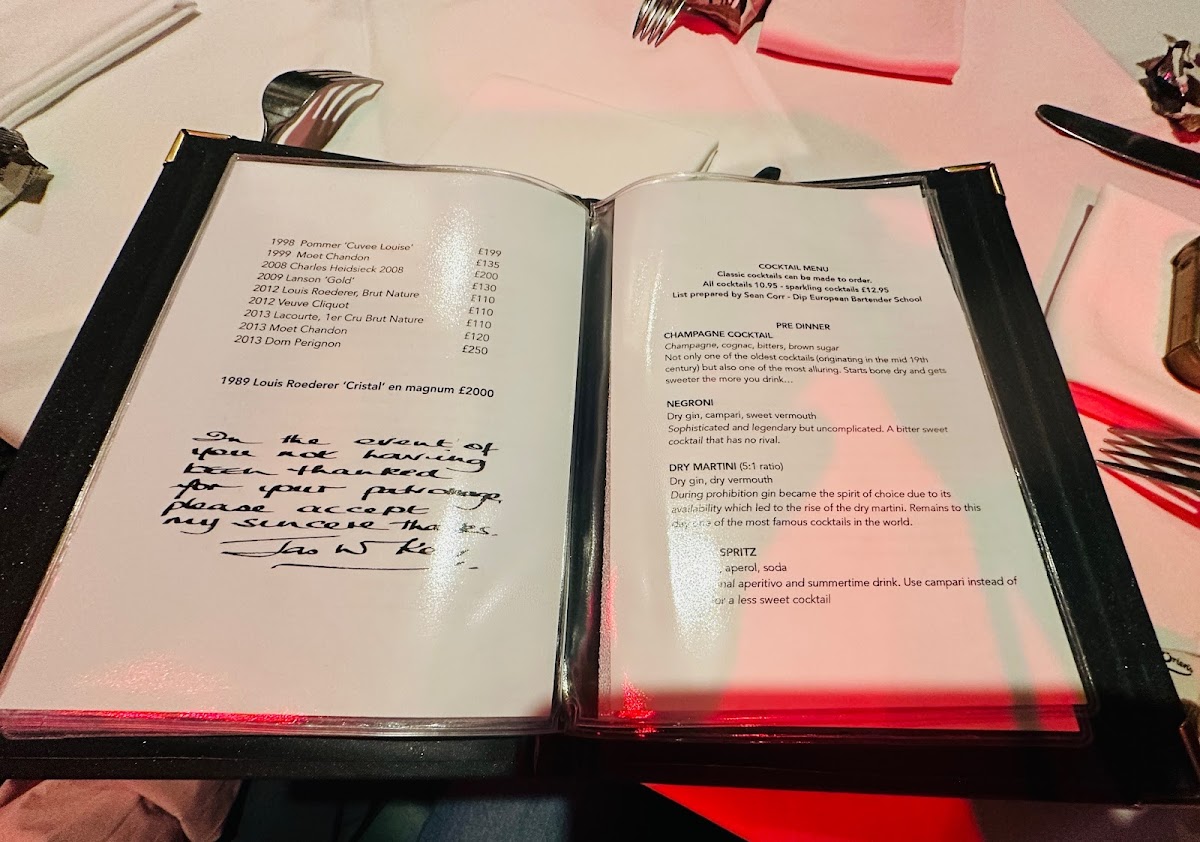 1998 Pommer 'Cuvee Louise' £199
1999 Moet Chandon £135
2008 Charles Heidsieck 2008 £200
2009 Lanson 'Gold' £130
2012 Louis Roederer, Brut Nature £110
2012 Veuve Cliquot £110
2013 Lacourte, 1er Cru Brut Nature £110
2013 Moet Chandon £120
2013 Dom Perignon £250
1989 Louis Roederer 'Cristal' en magnum £2000
In the event of
you not having
been thanked
for your patronage,
please accept
my sincere thanks.
COCKTAIL MENU
Classic cocktails can be made to order.
All cocktails 10.95 - sparkling cocktails £12.95
List prepared by Sean Corr - Dip European Bartender School
PRE DINNER
CHAMPAGNE COCKTAIL
Champagne, cognac, bitters, brown sugar
Not only one of the oldest cocktails (originating in the mid 19th
century) but also one of the most alluring. Starts bone dry and gets
sweeter the more you drink...
NEGRONI
Dry gin, campari, sweet vermouth
Sophisticated and legendary but uncomplicated. A bitter sweet
cocktail that has no rival.
DRY MARTINI (5:1 ratio)
Dry gin, dry vermouth
During prohibition gin became the spirit of choice due to its
availability which led to the rise of the dry martini. Remains to this
day one of the most famous cocktails in the world.
SPRITZ
, aperol, soda
aperitivo and summertime drink. Use campari instead of
a less sweet cocktail